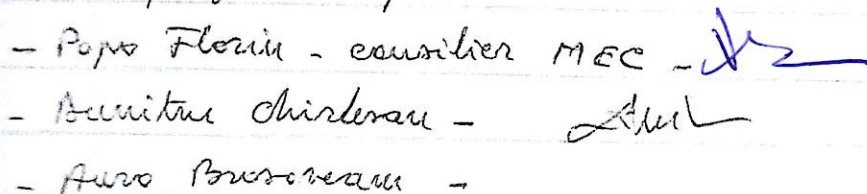 - Popa Florin - consilier MEC -
- Dumitru Chirlesan -
- Aura Brasoveanu -